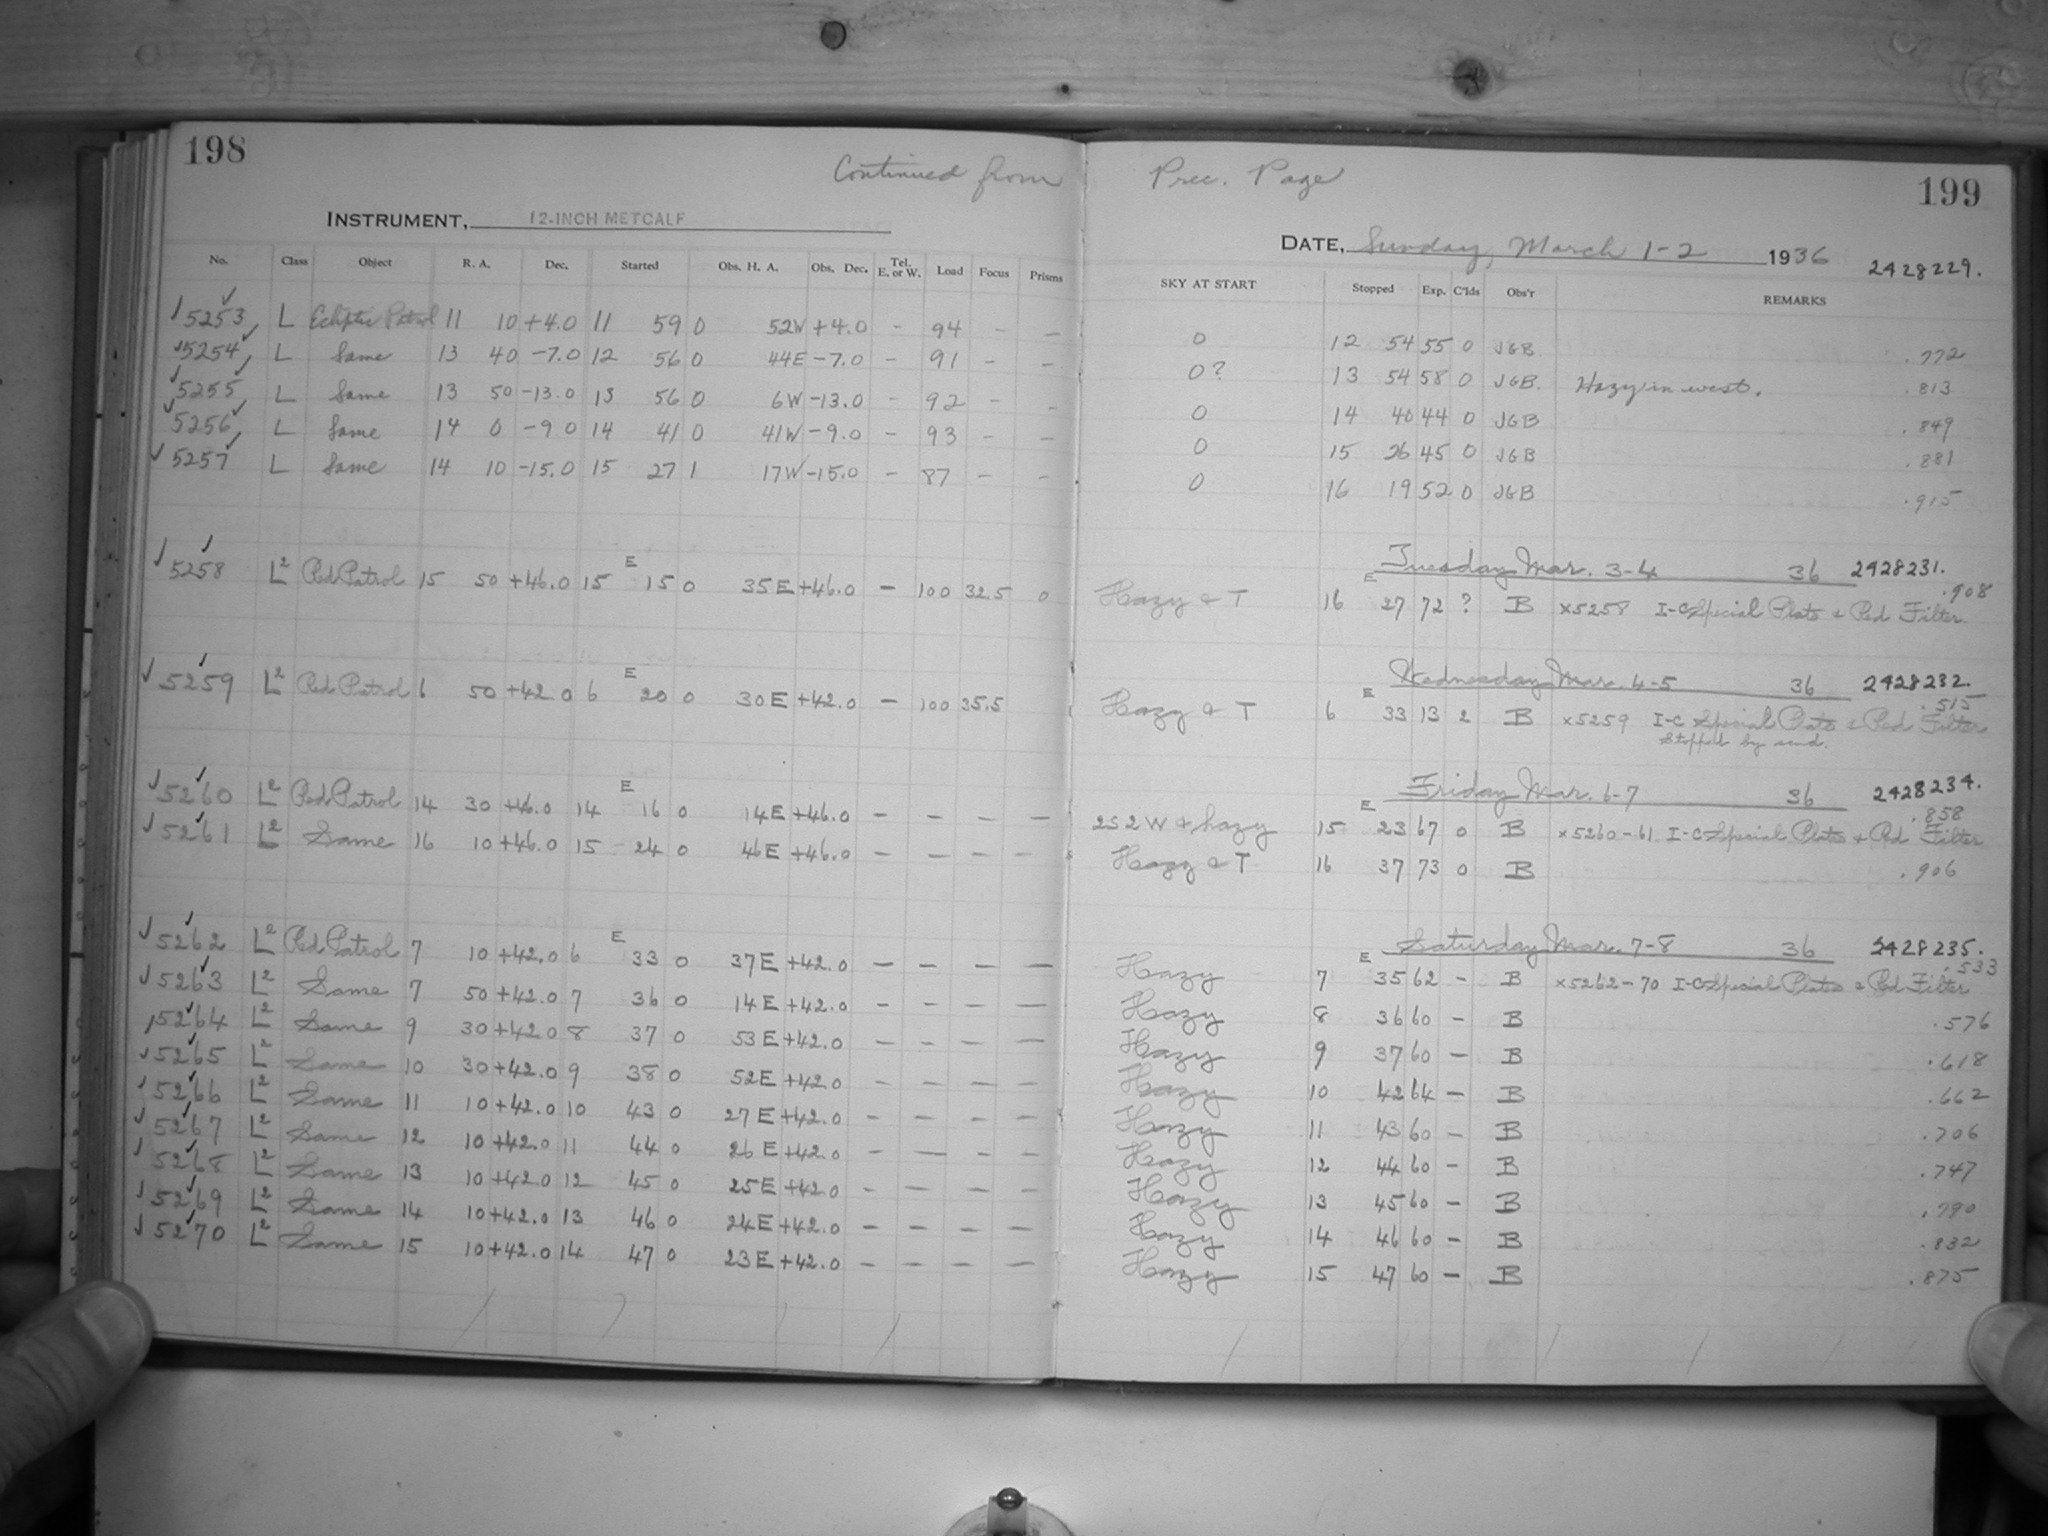 198
Continued from Prec. Page
199
INSTRUMENT, 12-INCH METCALF
DATE, Sunday, March 1-2 1936 2428229.
No. Class Object R. A. Dec. Started Obs. H. A. Obs. Dec. Tel. E. or W. Load Focus Prisms SKY AT START Stopped Exp. C'lds Obs'r REMARKS
5253 L Ecliptic Patrol 11 10 +4.0 11 59 0 52W +4.0 - 94 - - 0 12 54 55 0 JGB .772
5254 L Same 13 40 -7.0 12 56 0 44E -7.0 - 91 - - 0? 13 54 58 0 JGB. Hazy in west. .813
5255 L Same 13 50 -13.0 13 56 0 6W -13.0 - 92 - - 0 14 40 44 0 JGB .849
5256 L Same 14 0 -9.0 14 41 0 41W -9.0 - 93 - - 0 15 26 45 0 JGB .881
5257 L Same 14 10 -15.0 15 27 1 17W -15.0 - 87 - - 0 16 19 52 0 JGB .915
Tuesday Mar. 3-4 36 2428231.
5258 L² Red Patrol 15 50 +46.0 15 E 15 0 35E +46.0 - 100 32.5 0 Hazy & T E 16 27 72 ? B x5258 I-C Special Plate & Red Filter .908
Wednesday Mar. 4-5 36 2428232.
5259 L² Red Patrol 6 50 +42.0 6 E 20 0 30E +42.0 - 100 35.5 Hazy & T E 6 33 13 2 B x5259 I-C Special Plate & Red Filter .515
Stopped by
Friday Mar. 6-7 36 2428234.
5260 L² Red Patrol 14 30 +46.0 14 E 16 0 14E +46.0 - - - - 2S 2W & hazy E 15 23 67 0 B x5260-61 I-C Special Plates & Red Filter .858
5261 L² Same 16 10 +46.0 15 24 0 46E +46.0 - - - - Hazy & T 16 37 73 0 B .906
Saturday Mar. 7-8 36 2428235.
5262 L² Red Patrol 7 10 +42.0 6 E 33 0 37E +42.0 - - - - Hazy E 7 35 62 - B x5262-70 I-C Special Plates & Red Filter .533
5263 L² Same 7 50 +42.0 7 36 0 14E +42.0 - - - - Hazy 8 36 60 - B .576
5264 L² Same 9 30 +42.0 8 37 0 53E +42.0 - - - - Hazy 9 37 60 - B .618
5265 L² Same 10 30 +42.0 9 38 0 52E +42.0 - - - - Hazy 10 42 64 - B .662
5266 L² Same 11 10 +42.0 10 43 0 27E +42.0 - - - - Hazy 11 43 60 - B .706
5267 L² Same 12 10 +42.0 11 44 0 26E +42.0 - - - - Hazy 12 44 60 - B .747
5268 L² Same 13 10 +42.0 12 45 0 25E +42.0 - - - - Hazy 13 45 60 - B .790
5269 L² Same 14 10 +42.0 13 46 0 24E +42.0 - - - - Hazy 14 46 60 - B .832
5270 L² Same 15 10 +42.0 14 47 0 23E +42.0 - - - - Hazy 15 47 60 - B .875